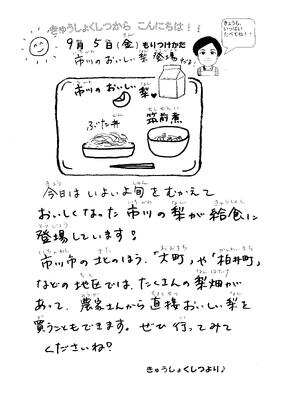 きゅうしょくしつから こんにちは！！
きょうも、
いっぱい
たべてね！！
9月 5日(金) もりつけかた
市川の おいしい 梨 登場
市川の おいしい 梨
ぶた丼
筑前煮
今日は いよいよ旬を むかえて
おいしくなった 市川の 梨が 給食に
登場しています！
市川市の 北のほう、「大町」や「柏井町」
などの 地区では、たくさんの 梨畑が
あって、農家さんから 直接 おいしい 梨を
買うこともできます。ぜひ 行ってみて
くださいね！
きゅうしょくしつより♪